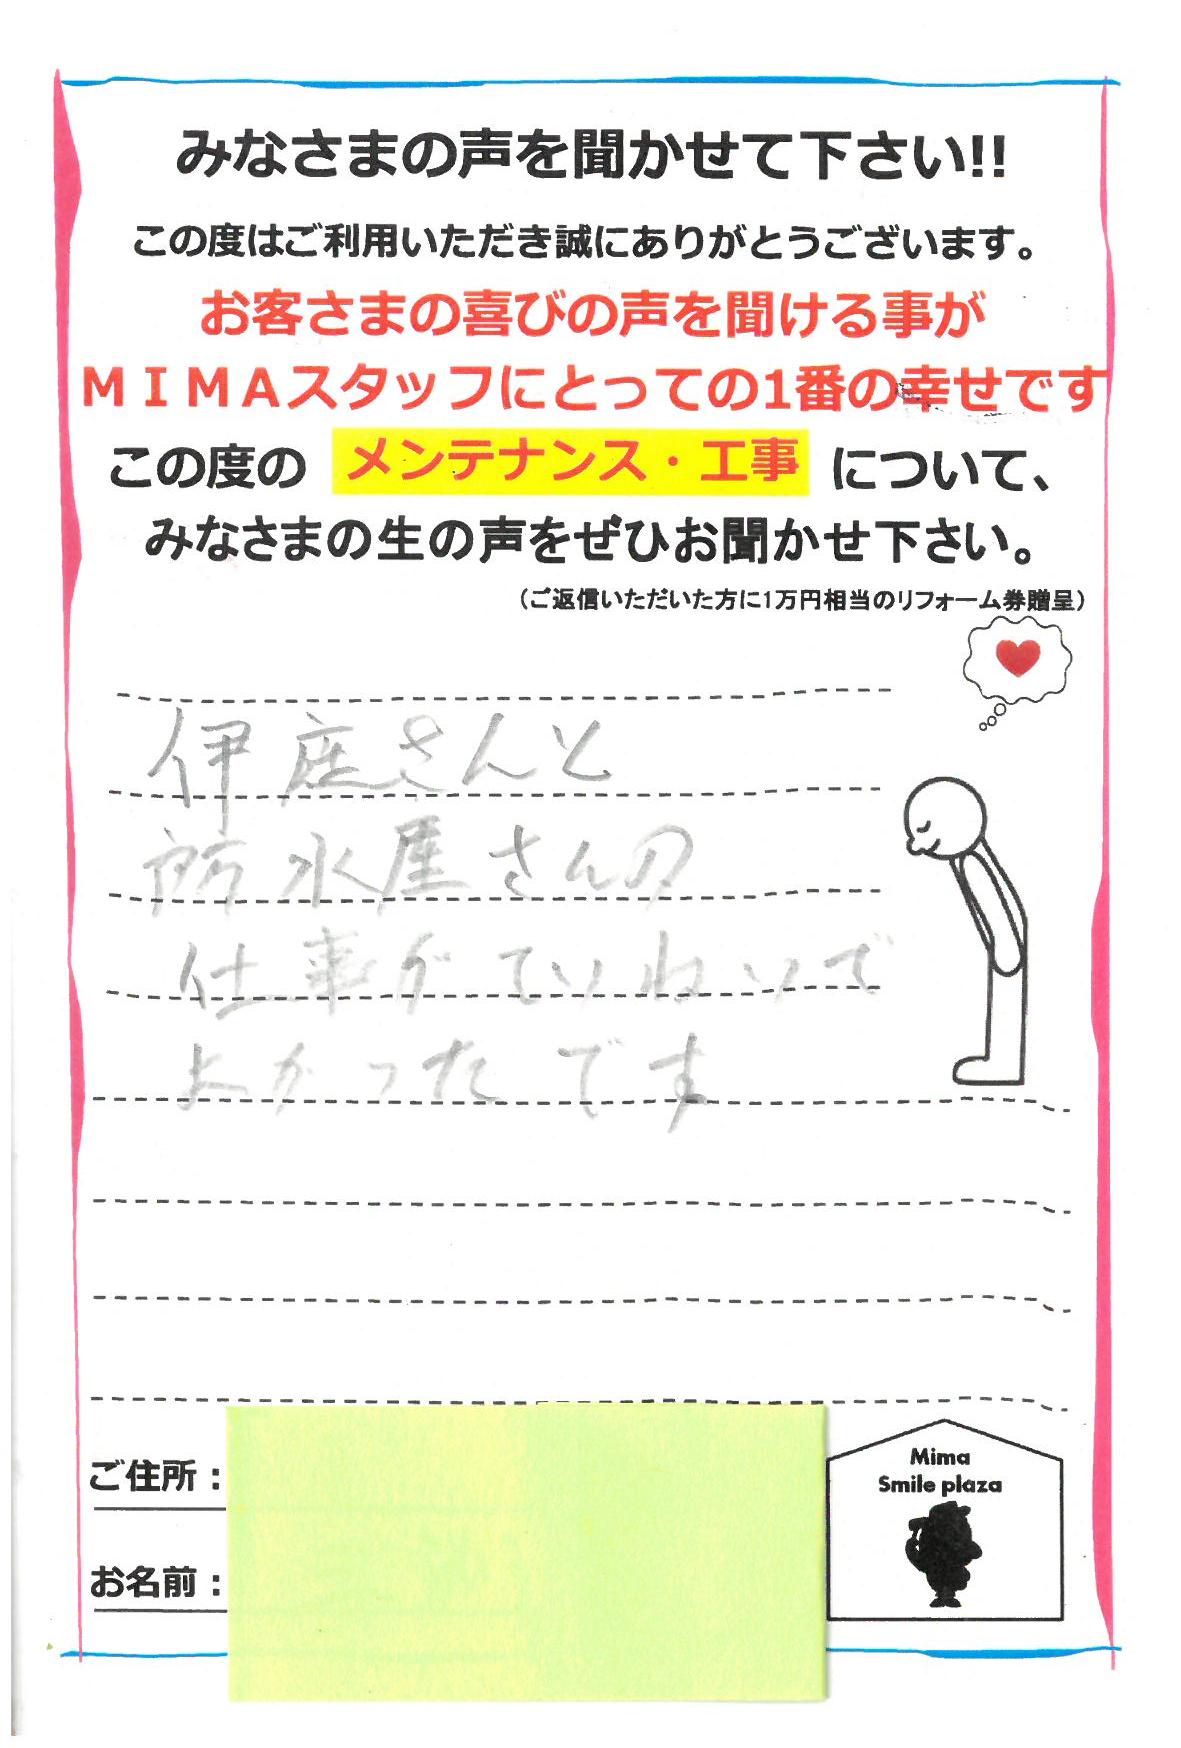 みなさまの声を聞かせて下さい!!
この度はご利用いただき誠にありがとうございます。
お客さまの喜びの声を聞ける事が
ＭＩＭＡスタッフにとっての1番の幸せです
この度の メンテナンス・工事 について、
みなさまの生の声をぜひお聞かせ下さい。
（ご返信いただいた方に1万円相当のリフォーム券贈呈）
伊庭さんと
防水屋さんの
仕事がていねいで
よかったです
ご住所：
お名前：
Mima
Smile plaza